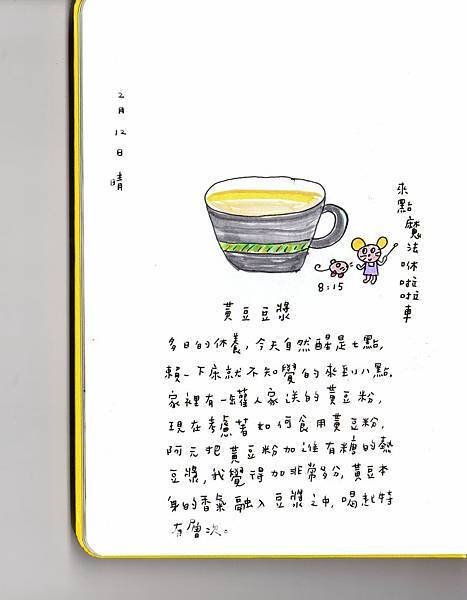 2月12日 晴
來點魔法咻啦啦車
8:15
黃豆豆漿
多日的休養,今天自然醒是七點,
賴一下床就不知覺的來到八點.
家裡有一罐人家送的黃豆粉,
現在考慮著如何食用黃豆粉,
阿元把黃豆粉加進有糖的熱
豆漿,我覺得加非常多分,黃豆本
身的香氣融入豆漿之中,喝起特
有層次。